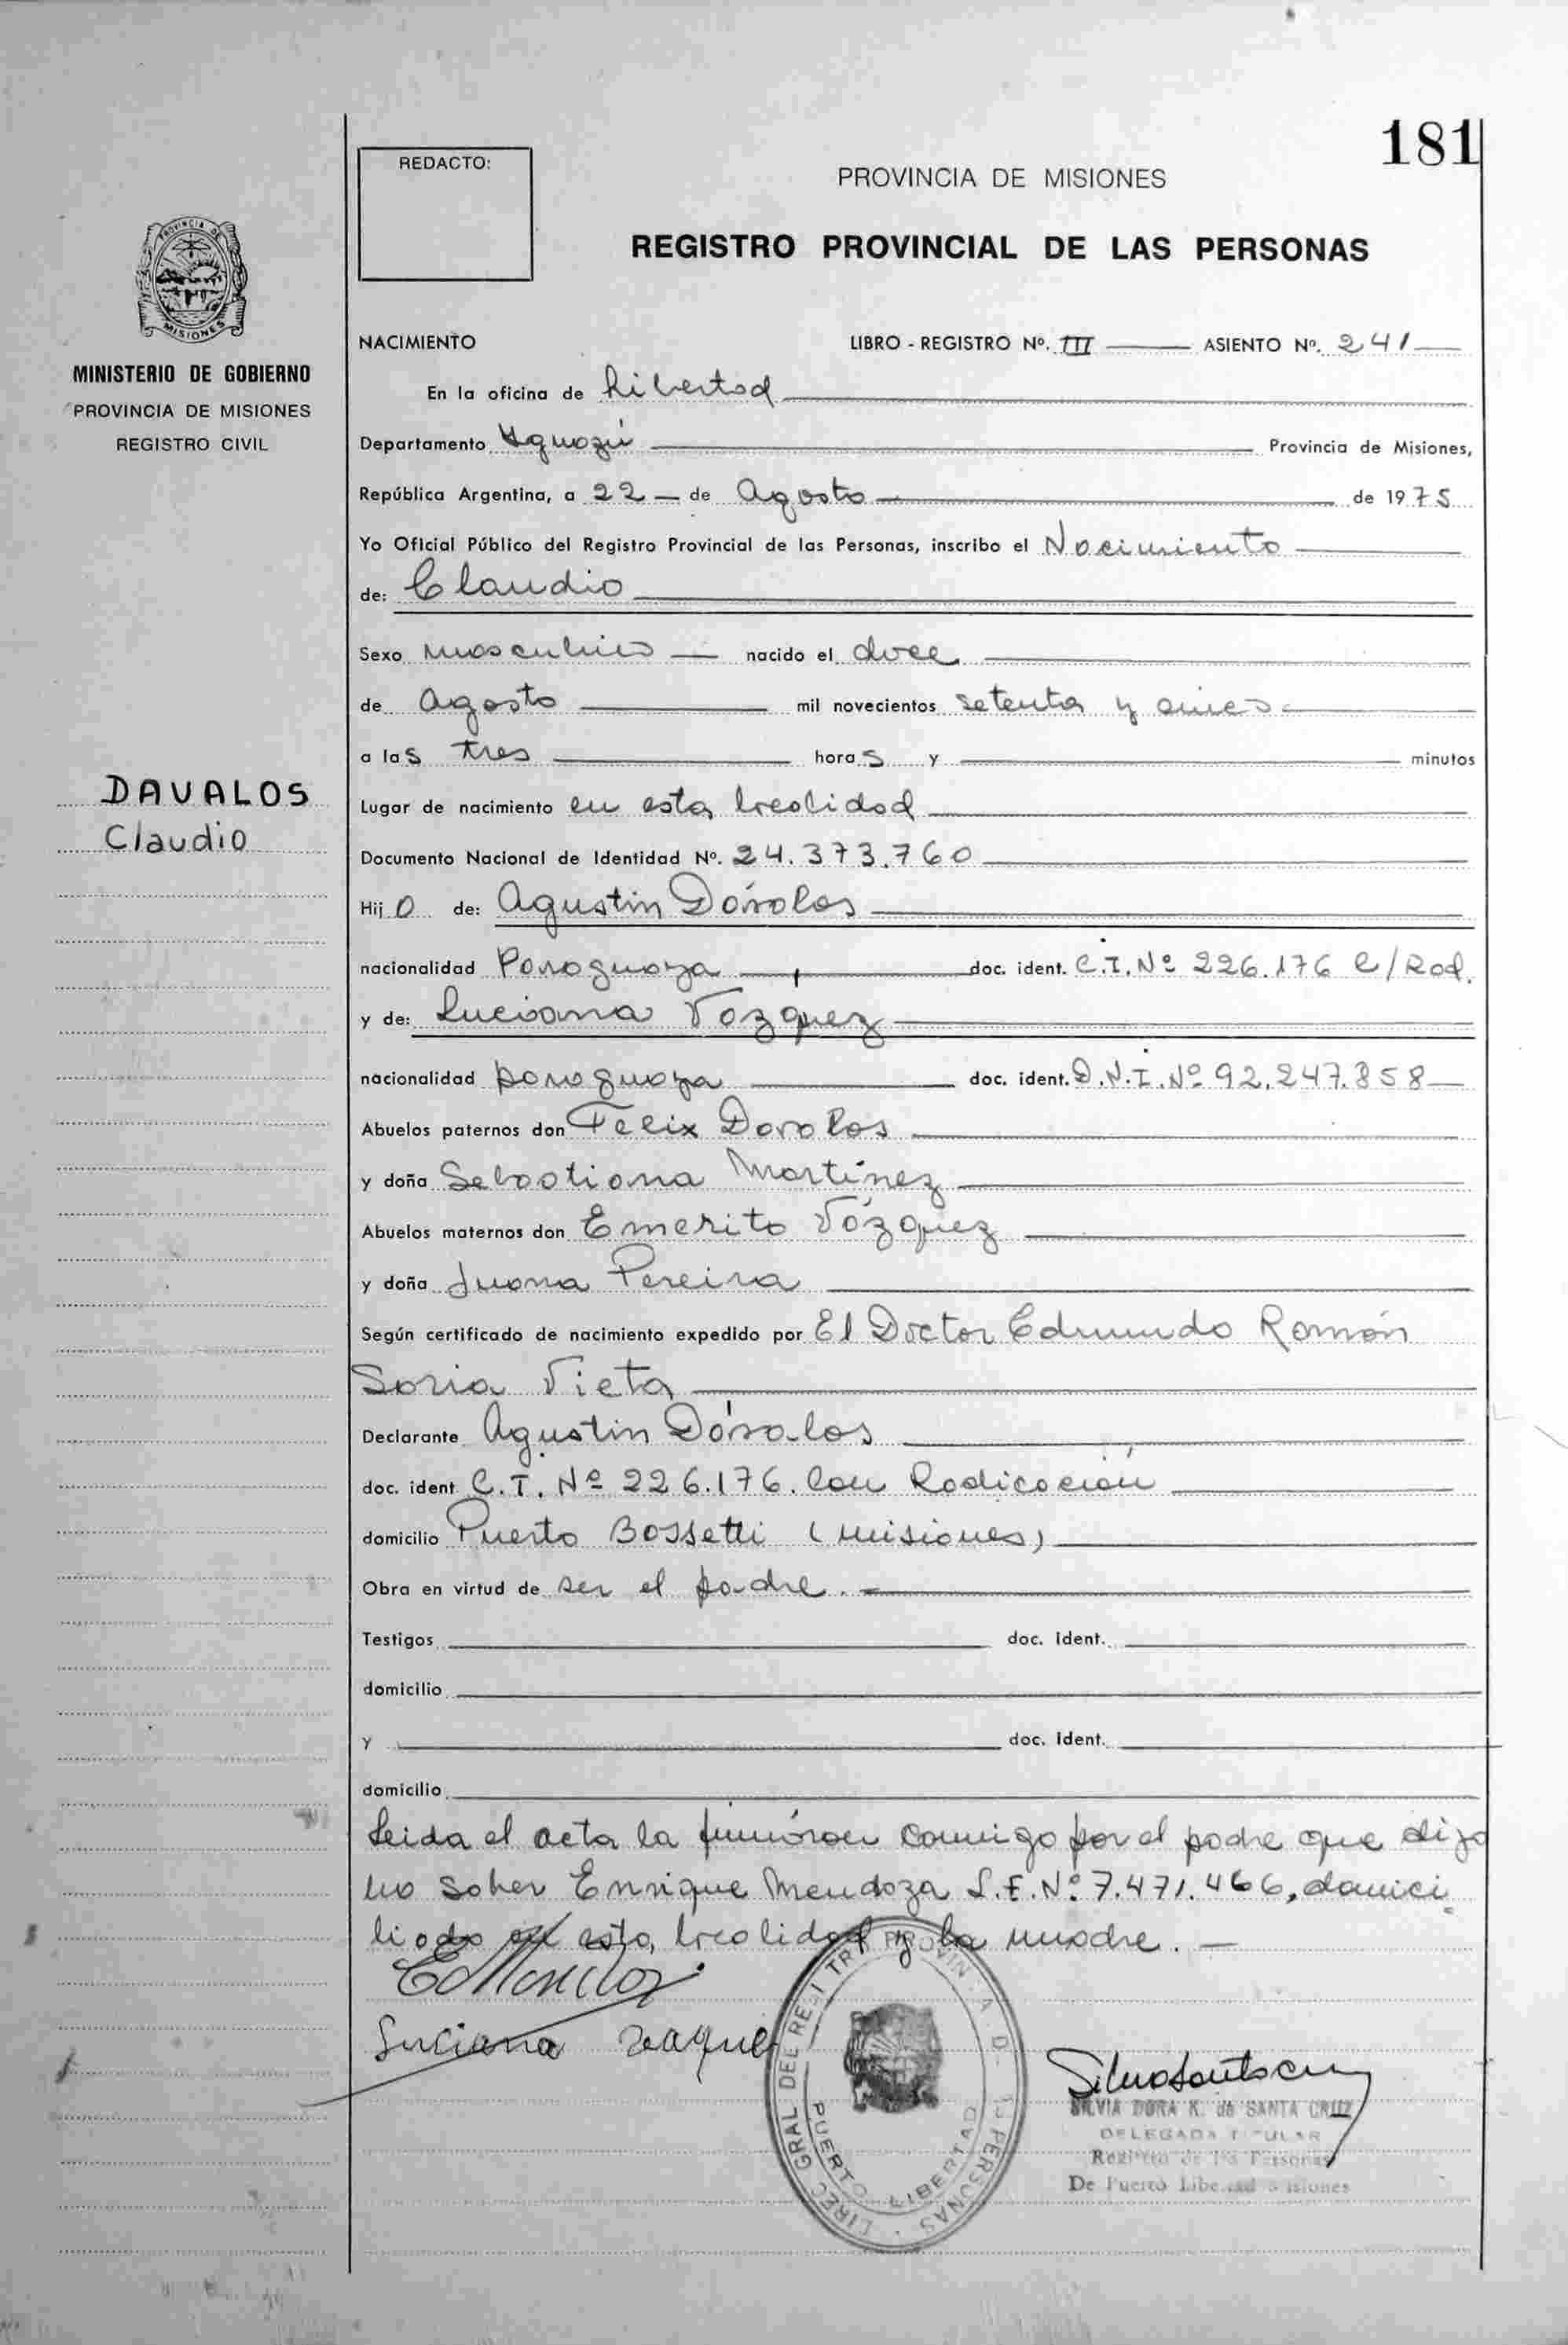 181
REDACTO:
PROVINCIA DE MISIONES
REGISTRO PROVINCIAL DE LAS PERSONAS
PROVINCIA DE
MISIONES
MINISTERIO DE GOBIERNO
PROVINCIA DE MISIONES
REGISTRO CIVIL
NACIMIENTO LIBRO - REGISTRO Nº. III ASIENTO Nº. 241
En la oficina de Libertad
Departamento Yguazú Provincia de Misiones,
República Argentina, a 22 — de Agosto — de 1975
Yo Oficial Público del Registro Provincial de las Personas, inscribo el Nacimiento
de: Claudio
Sexo masculino — nacido el doce
de Agosto mil novecientos setenta y cinco
a las tres horas y minutos
DAVALOS
Claudio
Lugar de nacimiento en esta localidad
Documento Nacional de Identidad Nº. 24.373.760
Hijo de: Agustin Dávalos
nacionalidad Paraguaya doc. ident. C.I. Nº 226.176 C/Rad.
y de: Luciana Vázquez
nacionalidad paraguaya doc. ident. D.N.I. Nº 92.247.858
Abuelos paternos don Felix Davalos
y doña Sebastiana Martínez
Abuelos maternos don Emerito Vázquez
y doña Juana Pereira
Según certificado de nacimiento expedido por El Doctor Edmundo Román
Soria Vieta
Declarante Agustin Dávalos
doc. ident. C.I. Nº 226.176. Con Radicación
domicilio Puerto Bossetti (Misiones)
Obra en virtud de ser el padre.
Testigos doc. ident.
domicilio
y doc. ident.
domicilio
Leida el acta la firmáron conmigo por el padre que dijo
no saber Enrique Mendoza L.E. Nº 7.471.466, domici
liado en esta localidad y la madre. —
Luciana
PUERTO LIBERTAD
SILVIA DORA K. de SANTA CRUZ
DELEGADA TITULAR
Registro de las Personas
De Puerto Libertad Misiones